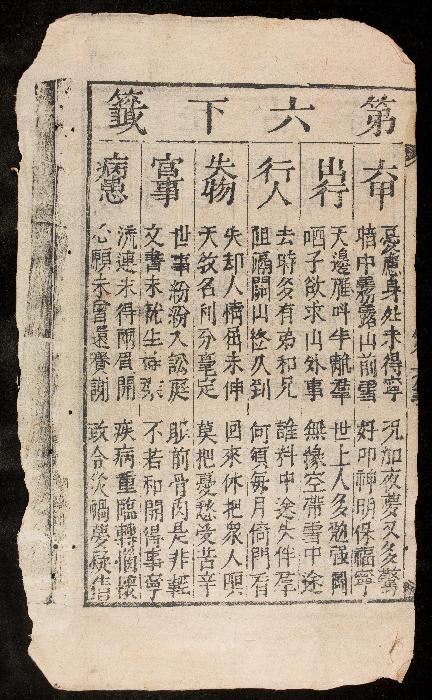 第六下籤
六甲
身处未得寧 况加夜夢又多驚
暗中霧露山前雪 好叩神明保福寧
出行
天邊雁叫半離羣 世上人多勉强
哂子欲求山外事 無 空帶雪中途
行人
去時多有弟和兄 誰料中途失伴羣
阻隔關山悠久到 何須每月倚門看
失物
失却人情 未伸 回來休把衆人嗔
天教名利分毫定 莫把憂愁受苦辛
官事
世事紛紛入訟庭 眼前骨肉是非輕
文書未就生 不若和開得事寧
病患
流連未得兩眉開 疾病重臨轉惱懷
心願未曾還賽謝 致令災禍夢疑猜